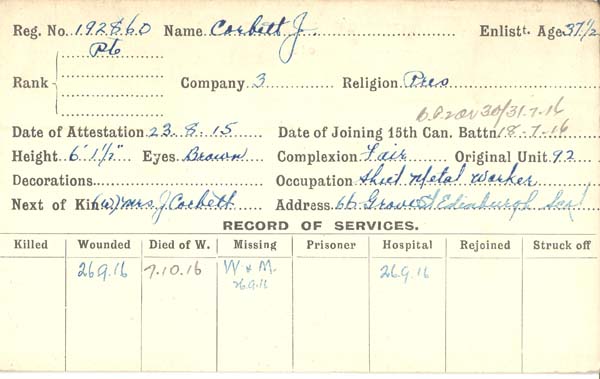 Reg. No. 192860 Name Corbett J. Enlistt. Age 37½
Rank Pte Company 3 Religion Pres
O.P. 2 ov 30/31-7-16
Date of Attestation 23.8.15 Date of Joining 15th Can. Battn 18-7-16
Height 6' 1½" Eyes Brown Complexion Fair Original Unit 92
Decorations Occupation Sheet Metal Worker
Next of Kin (W) Mrs J Corbett Address 66 Grove St Edinburgh Scot
RECORD OF SERVICES.
Killed Wounded Died of W. Missing Prisoner Hospital Rejoined Struck off
26.9.16 7.10.16 W & M. 26.9.16
26.9.16